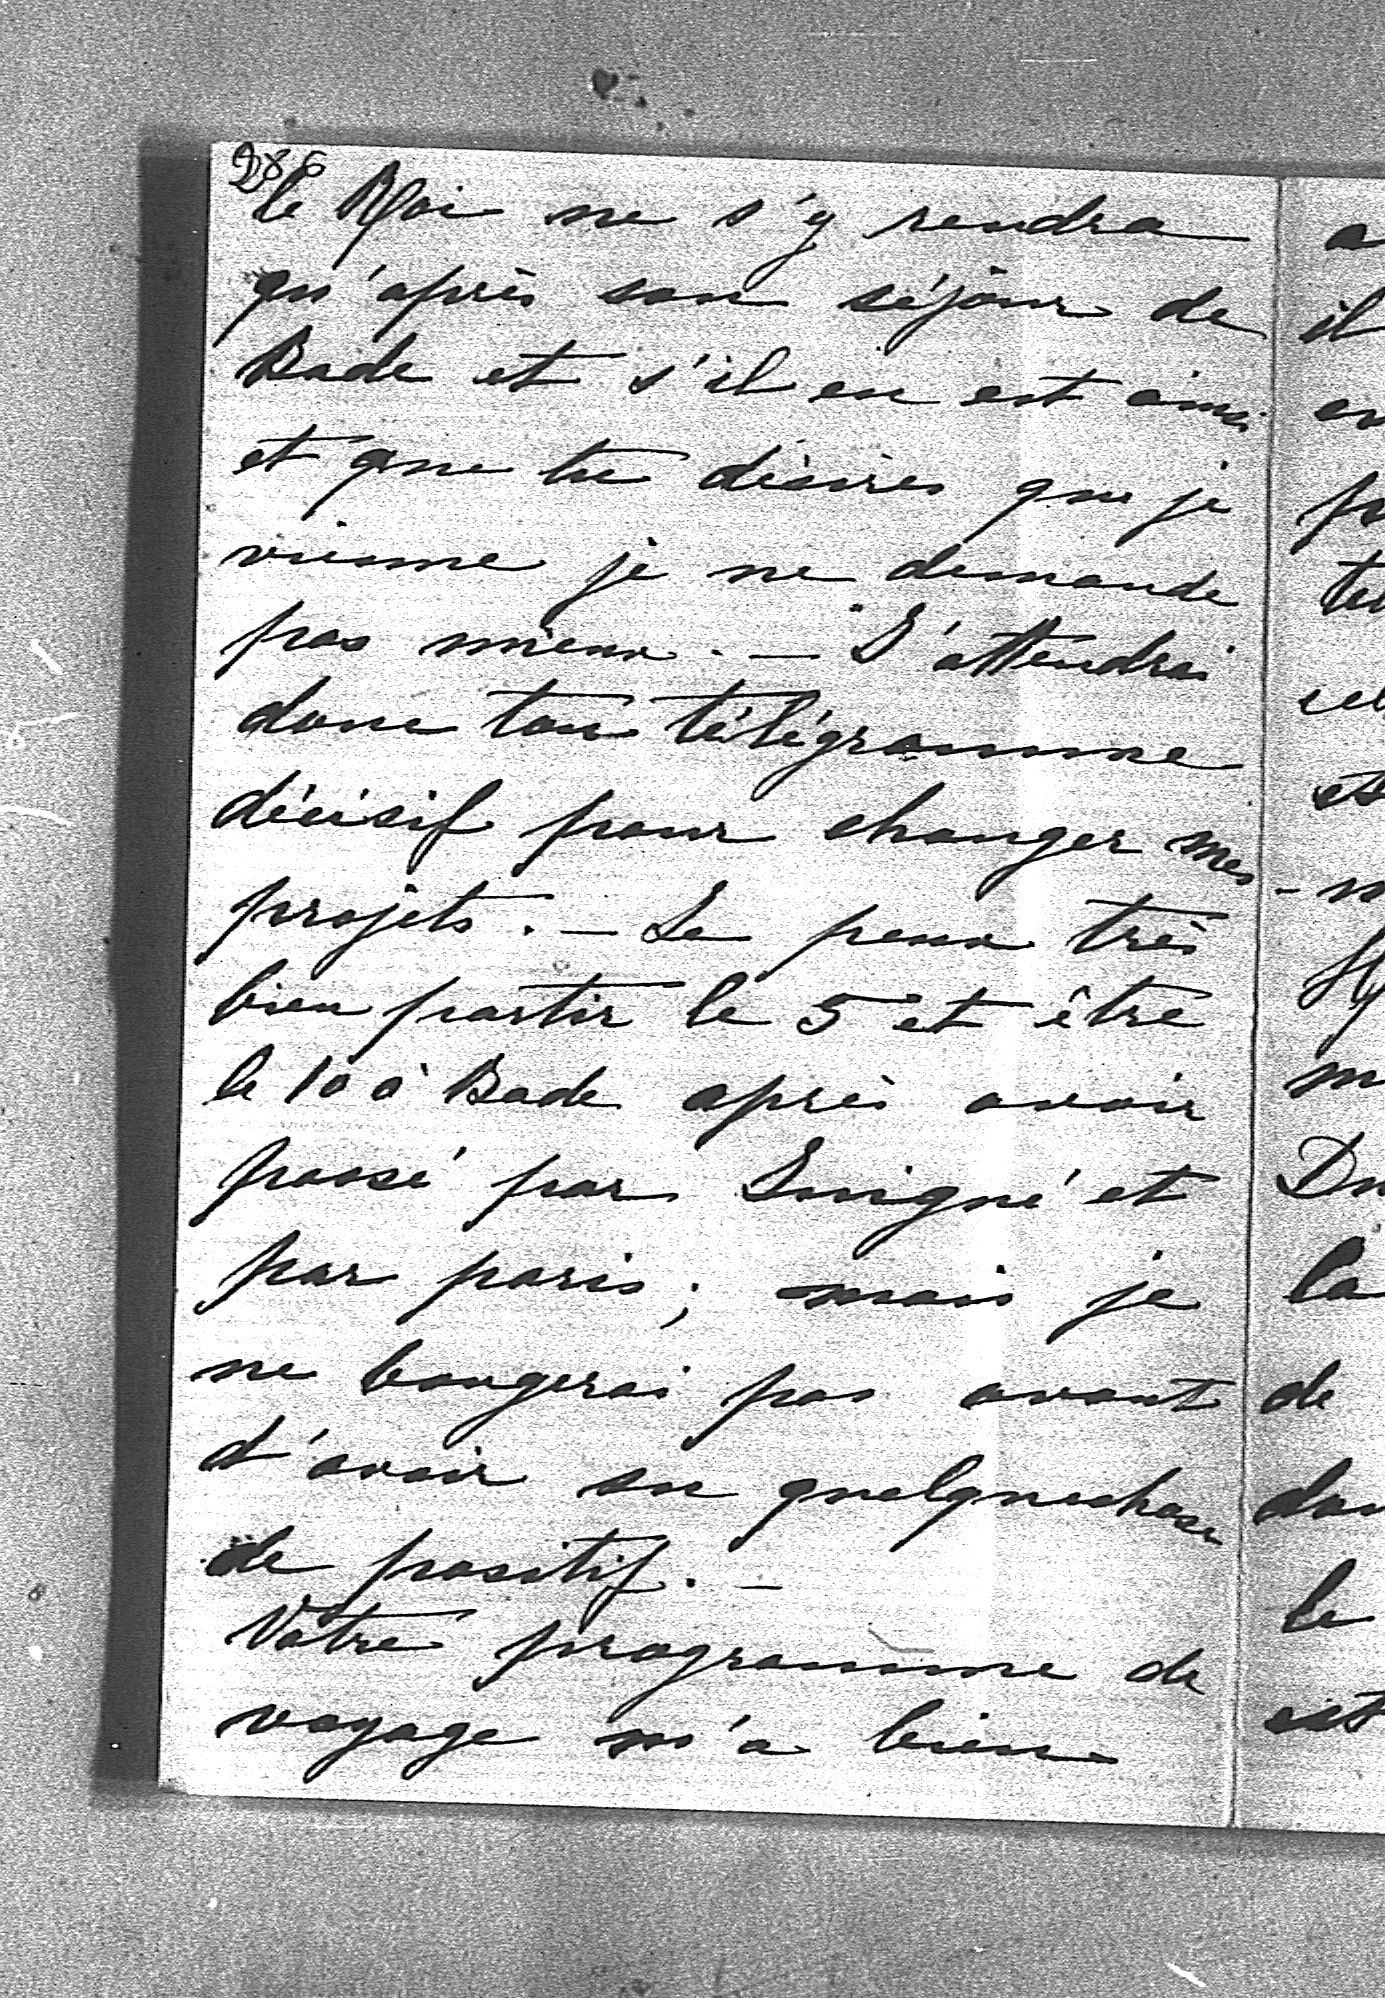 286
le Roi ne s'y rendra
qu'après son séjour de
Bade et s'il en est ainsi
et que tu désires que je
vienne je ne demande
pas mieux. — J'attendrai
donc ton télégramme
décisif pour changer mes
projets. — Je peux très
bien partir le 5 et être
le 10 à Bade après avoir
passé par et
par paris; mais je
ne bougerai pas avant
d'avoir su quelquechose
de positif. —
Votre programme de
voyage m'a bien